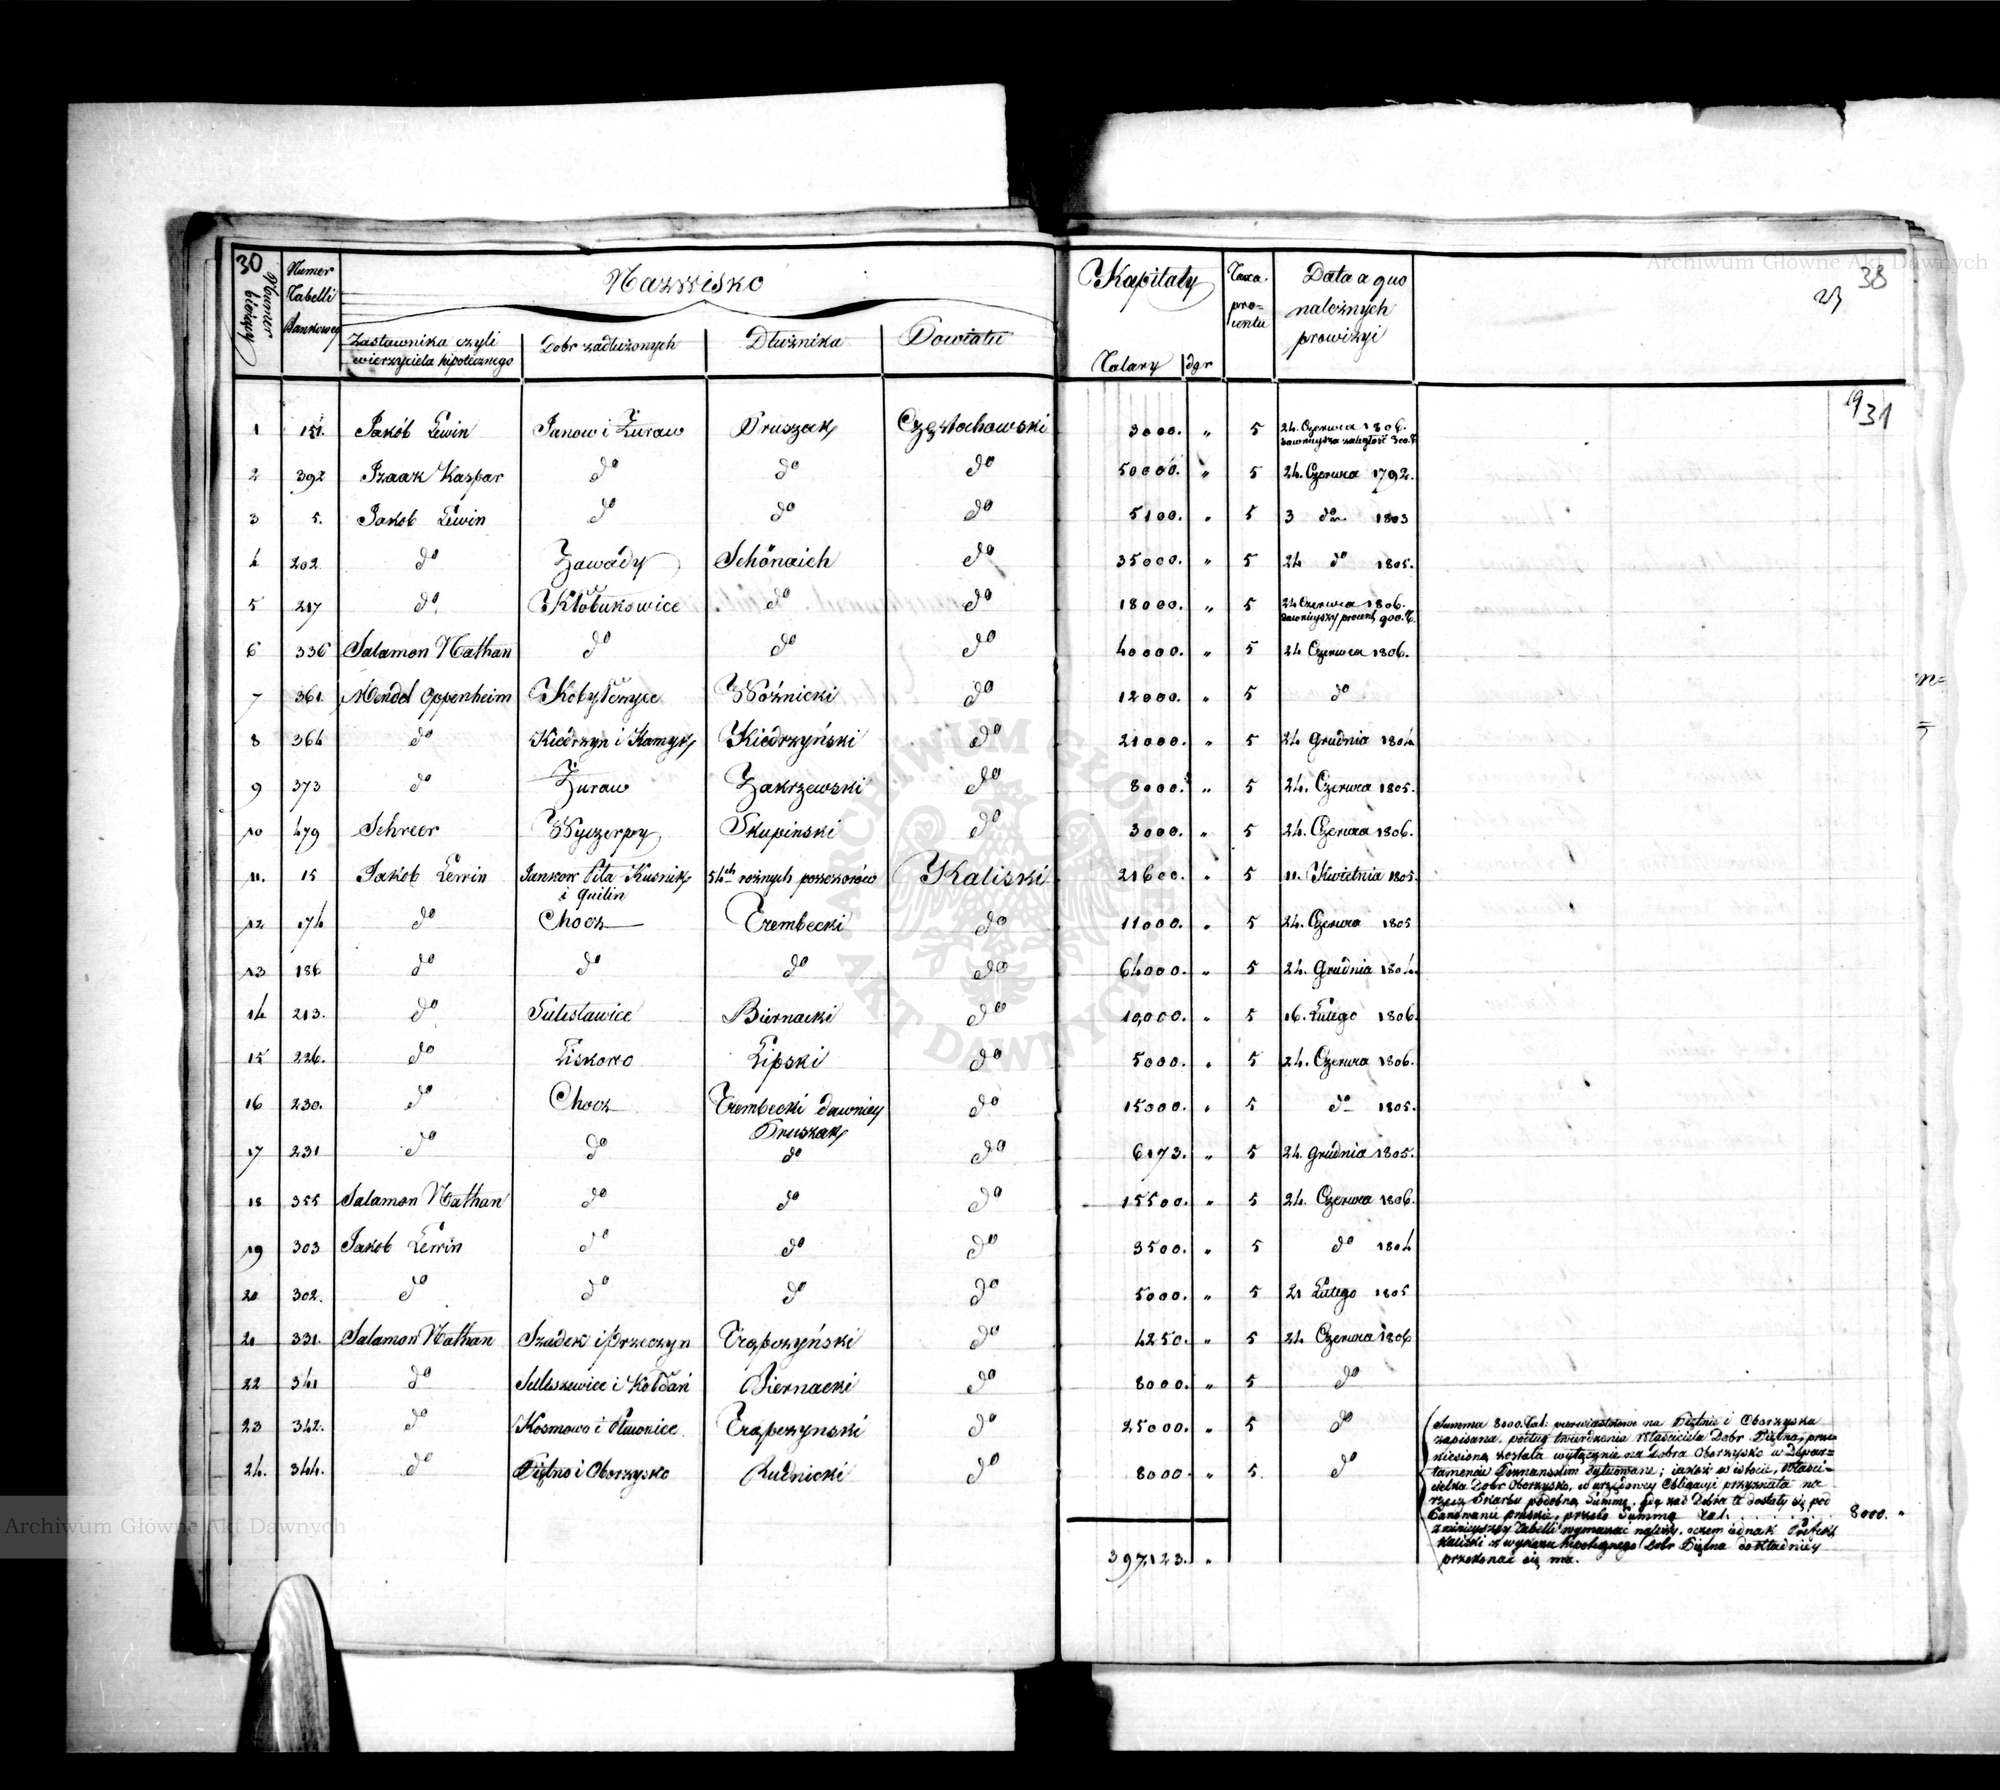 30
Numer bieżący
Numer Tabelli Bankowey
Nazwisko
Zastawnika czyli wierzyciela hipotecznego
Dobr zadłużonych
Dłużnika
Powiatu
Kapitały
Talary dgr
Taxa procentu
Data a quo należnych prowizyi
38
23
31
1 151. Jakób Lewin Janow i Żuraw Pruszak Częstochowski 3000. „ 5 24. Czerwca 1806.
dawnieysza zaległość 300.
2 392 Izaak Kaspar do do do 50000. „ 5 24. Czerwca 1792.
3 5. Jakob Lewin do do do 5100. „ 5 3 do 1803
4 202 do Zawady Schönaich do 35000. „ 5 24 do 1805.
5 217 do Kłobukowice do do 18000. „ 5 24 Czerwca 1806.
dawnieyszy procent 900.
6 336 Salamon Nathan do do do 40000. „ 5 24 Czerwca 1806.
7 361. Mendel Oppenheim Kobyłczyce Woźnicki do 12000. „ 5 do
8 364 do Kiedrzyn i Kamyk Kiedrzyński do 21000. „ 5 24 Grudnia 1804
9 373 do Żuraw Zakrzewski do 8000. „ 5 24. Czerwca 1805.
10 479 Schreer Wyczerpy Skupinski do 3000. „ 5 24. Czerwca 1806.
11. 15 Jakob Lewin Jankow Piła Kuźnik 54ch rożnych possessorów Kaliski 21600. „ 5 11. Kwietnia 1805.
i Quilin
12 174 do Chocz Trembecki do 11000. „ 5 24. Czerwca 1805
13 186 do do do do 64000. „ 5 24. Grudnia 1804.
14 213. do Sulisławice Biernacki do 10,000. „ 5 16. Lutego 1806.
15 226. do Liskowo Lipski do 5000. „ 5 24. Czerwca 1806.
16 230. do Chocz Trembecki dawniey do 15000. „ 5 do 1805.
Pruszak
17 231 do do do do 6173. „ 5 24. Grudnia 1805.
18 355 Salamon Nathan do do do 15500. „ 5 24. Czerwca 1806.
19 303 Jakob Lewin do do do 3500. „ 5 do 1804
20 302. do do do do 5000. „ 5 21 Lutego 1805
21 331. Salamon Nathan Szadek i Przeczyn Trąpczyński do 4250. „ 5 24 Czerwca 1806
22 341 do i Kołdań Biernacki do 8000. „ 5 do
23 342. do Kosmowo i Trąpczynski do 25000. „ 5 do
24. 344. do Piętno i Oborzysko Rudnicki do 8000 „ 5. do
Summa 8000. Tal: na Piętnie i Oborzysku
zapisana, podług twierdzenia Właściciela Dobr Piętna, prze=
niesiona została wyłącznie na Dobra Oborzysko w Depar=
tamencie Poznanskim sytuowane; iakoż w istocie, Właści=
cielka Dobr Oborzysko, w urzędowey Obligacyi przyznała na
rzecz Skarbu podobną Summę, gdy zaś Dobra te dostały się pod
Panowanie pruskie, przeto Summa Tal. . . . . . . . 8000. „
z ninieyszey Tabelli wymazać należy, oczem iednak Prefekt
Kaliski z wykazu hipotecznego Dobr Piętna dokładniey
przekonać się ma.
397,123. „
Archiwum Główne Akt Dawnych
Archiwum Główne Akt Dawnych
ARCHIWUM GŁÓWNE AKT DAWNYCH